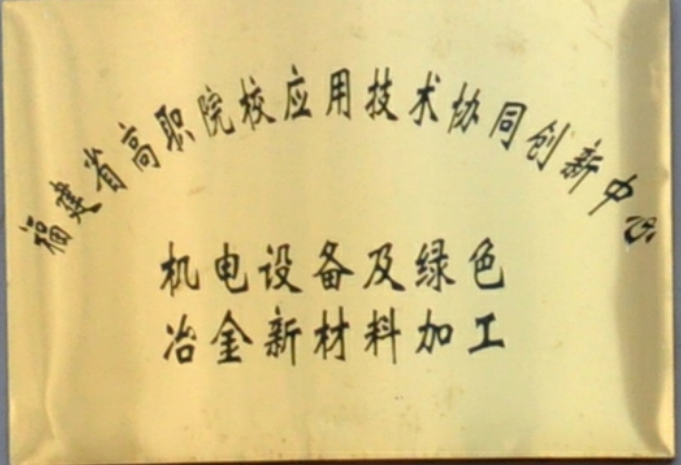 福建省高职院校应用技术协同创新中心
机电设备及绿色
冶金新材料加工